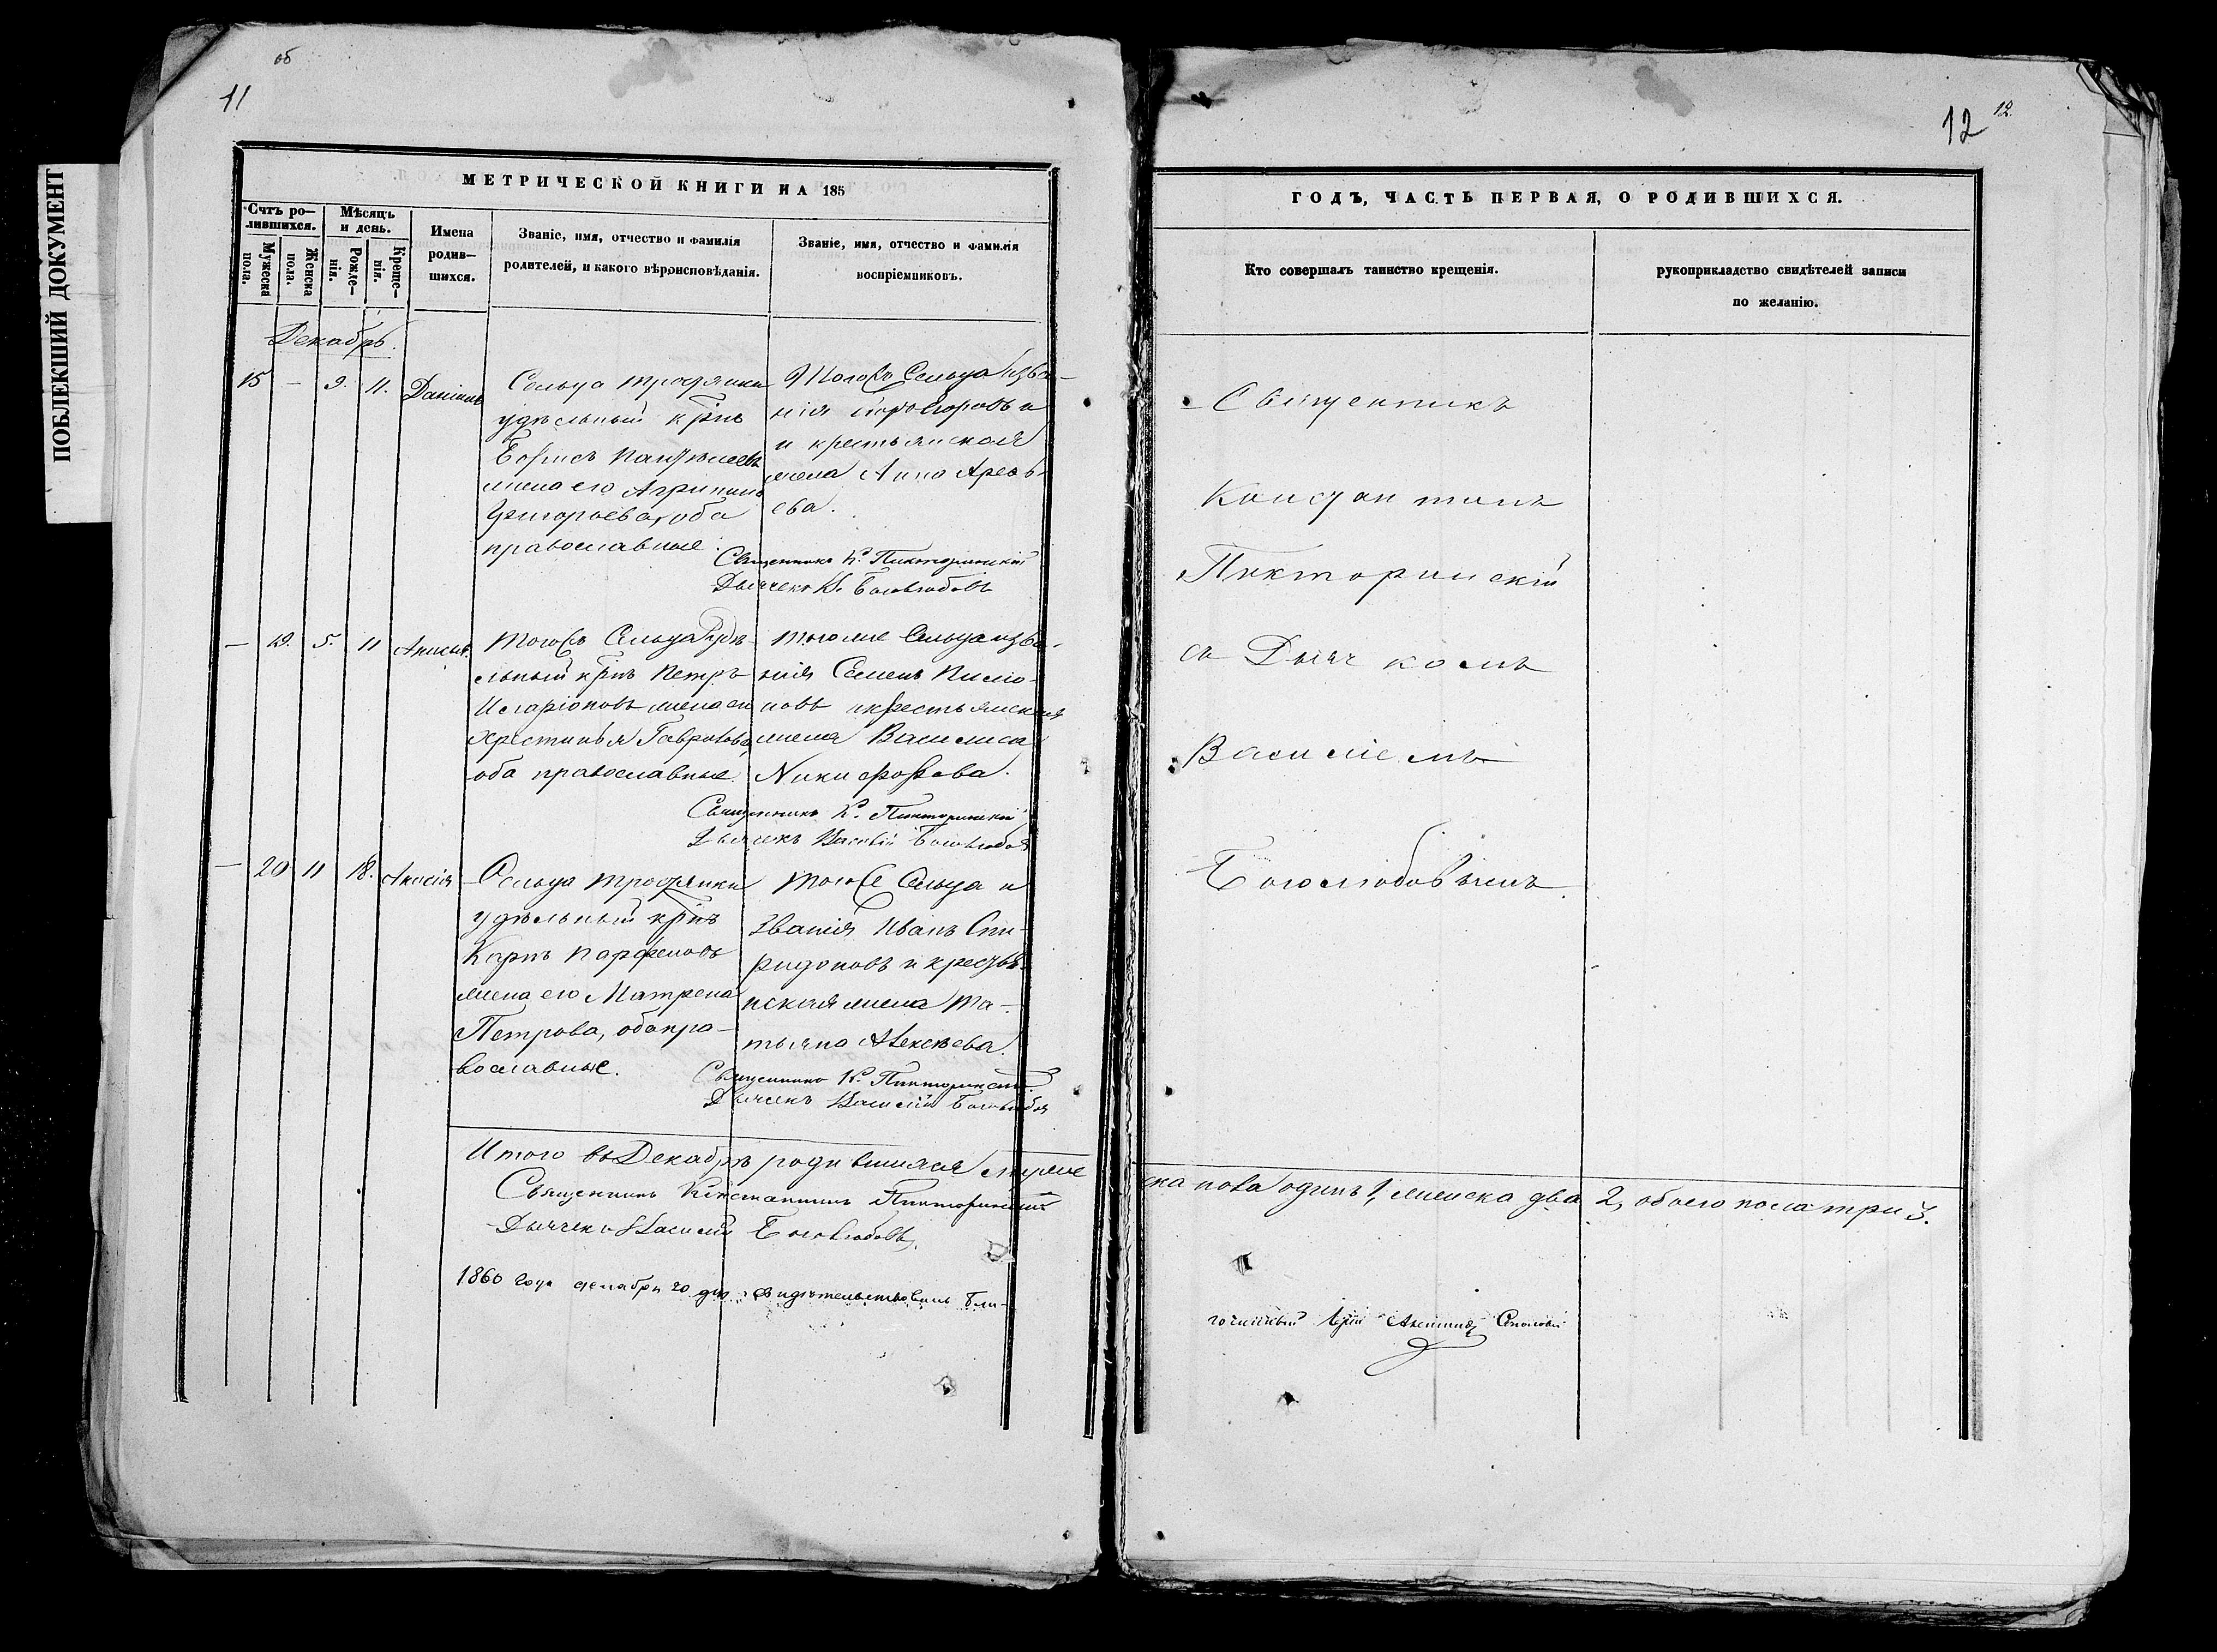 об
11
12 12.
ПОБЛЕКШИЙ ДОКУМЕНТ
МЕТРИЧЕСКОЙ КНИГИ НА 185
Счтъ ро–
дившихся.
Мужеска
пола.
Женска
пола.
Мѣсяцъ
и день.
Рожде–
нія.
Креще–
нія.
Имена
родив–
шихся.
Званіе, имя, отчество и фамилія
родителей, и какого вѣроисповѣданія.
Званіе, имя, отчество и фамилія
воспріемниковъ.
Декабрь.
15 – 9. 11. Даніилъ
Сельца
удѣльный крнъ
Борисъ
жена его Агрипина
Григорьева, оба
православные.
Тогожъ Сельца изва–
нія
и крестьянская
жена Анна
ева.
Священникъ К. Пикторинскій
Дьячекъ В. Боголюбовъ
– 19. 5. 11
Тогожъ Сельца Удѣ–
льный крнъ Петръ
Иларіоновъ жена его
Христинья Гаврилова,
оба православные.
тогоже Сельца изва–
нія Семенъ
новъ и крестьянская
жена Василиса
Никифорова.
Священникъ К. Пикторинскій
Дьячекъ Василій Боголюбовъ
– 20 11 18. Анисія
Сельца
удѣльный крнъ
Карпъ Парфеновъ
жена его Матрена
Петрова, оба пра–
вославные.
тогоже Сельца и
званія Иванъ Спи–
ридоновъ и крестья–
нская жена Та–
тьяна Алексѣева.
Священникъ К. Пикторинскій
Дьячекъ Василій Боголюбовъ
Итого въ Декабрѣ родившихся муже
Священникъ Константинъ Пикторинскій
Дьячекъ Василій Боголюбовъ.
1860 года декабря 20 дня свидѣтельствовалъ Бла–
ГОДЪ, ЧАСТЬ ПЕРВАЯ, О РОДИВШИХСЯ.
Кто совершалъ таинство крещенія.
рукоприкладство свидѣтелей записи
по желанію.
Священникъ
Константинъ
Пикторинскій
съ Дьячкомъ
Василіемъ
Боголюбовымъ.
ска пола одинъ 1, женска два 2, обоего пола три 3.
гочинный Іерей